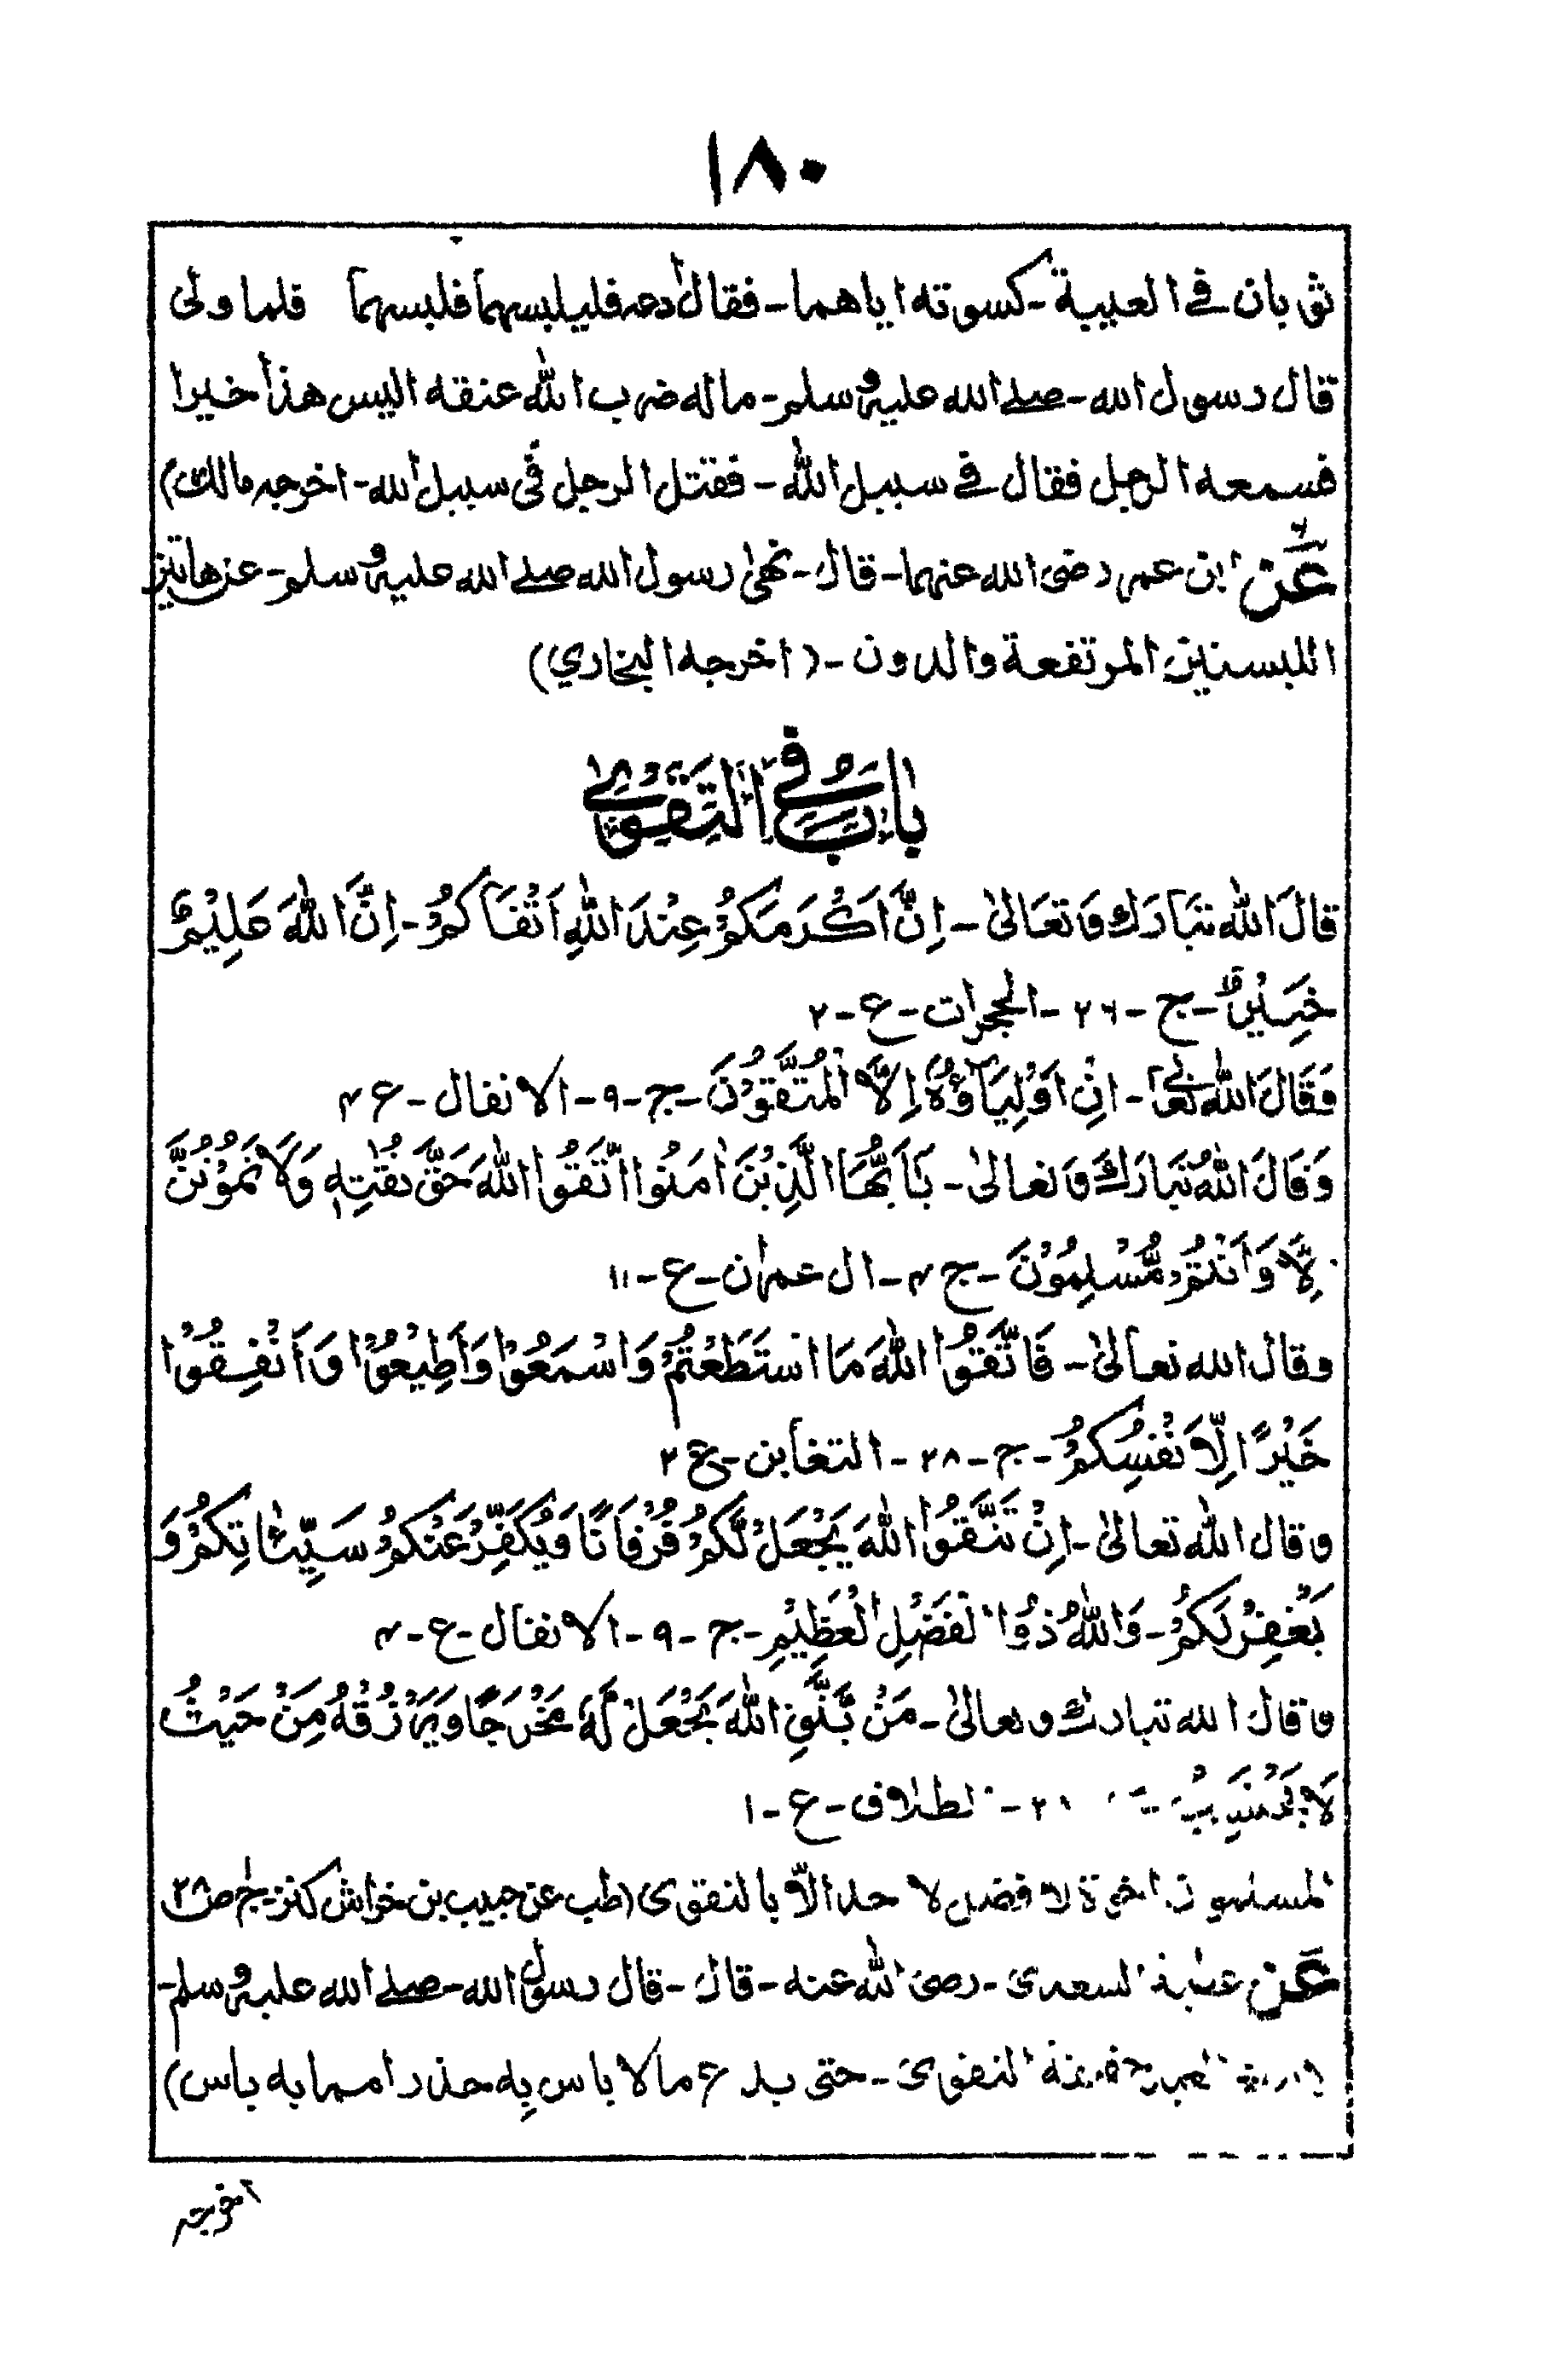 ١٨٠
ثوبان في العيبة - كسوته اياهما - فقال ادعه فليلبسهما فلبسهما فلما ولى
قال رسول الله - صلے الله عليه وسلم - ماله ضرب الله عنقه اليس هذا خيرا
فسمعه الرجل فقال في سبيل الله - فقتل الرجل في سبيل الله - اخرجه مالك)
عن ابن عمر رضى الله عنهما - قال - نهى رسول الله صلے الله عليه وسلم - عن هاتين
اللبستين المرتفعة والدون - (اخرجه البخاري)
بَابٌ فِي التَّقْوٰى
قالَ الله تبَارَك وَتعَالىٰ - اِنَّ اَكْرَمَكُمْ عِنْدَ اللّٰهِ اَتْقَاكُمْ - اِنَّ اللّٰهَ عَلِيْمٌ
خَبِيْرٌ - ج - ٢٦ - الحجرات - ع - ٢
وَقَالَ اللّٰه تعَالٰى - اِنْ اَوْلِيَاؤُهُ اِلَّا الْمُتَّقُوْنَ - ج - ٩ - الانفال - ع ٤
وَقَالَ اللّٰهُ تَبارَكَ وَتعالىٰ - يَااَيُّهَا الَّذِيْنَ اٰمَنُوا اتَّقُوا اللّٰهَ حَقَّ تُقٰتِهٖ وَلَا تَمُوْتُنَّ
اِلَّا وَاَنْتُمْ مُّسْلِمُوْنَ - ج ٤ - ال عمران - ع - ١١
وقال الله تعالىٰ - فَاتَّقُوا اللّٰهَ مَا اسْتَطَعْتُمْ وَاسْمَعُوْا وَاَطِيْعُوْا وَاَنْفِقُوْا
خَيْرًا لِّاَنْفُسِكُمْ - ج - ٢٨ - التغابن - ع ٢
وقال اللّٰه تعالىٰ - اِنْ تَتَّقُوا اللّٰهَ يَجْعَلْ لَّكُمْ فُرْقَانًا وَيُكَفِّرْ عَنْكُمْ سَيِّئَاتِكُمْ وَ
يَغْفِرْ لَكُمْ - وَاللّٰهُ ذُو الْفَضْلِ الْعَظِيْمِ - ج - ٩ - الانفال - ع - ٤
وقال الله تبارك وتعالىٰ - مَنْ يَّتَّقِ اللّٰهَ يَجْعَلْ لَّهٗ مَخْرَجًا وَيَرْزُقْهُ مِنْ حَيْثُ
لَا يَحْتَسِبُ - الطلاق - ع - ١
المسلمون اخوة لا فضل لاحد الّا بالتقوى (طب عن حبيب بن خراش كنز - ج
عن عطية السعدى - رضى الله عنه - قال - قال رسول الله - صلے الله عليه وسلم -
التقوى - حتى يدع مالا باس به حذرا مما به باس)
اخرجه